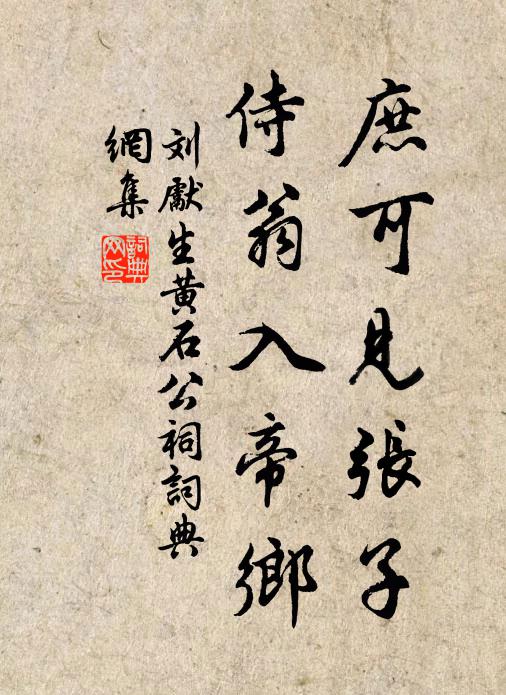 庶可見張子
侍翁入帝鄉
刘獻生黄石公祠詞典
網集
詞典
网印